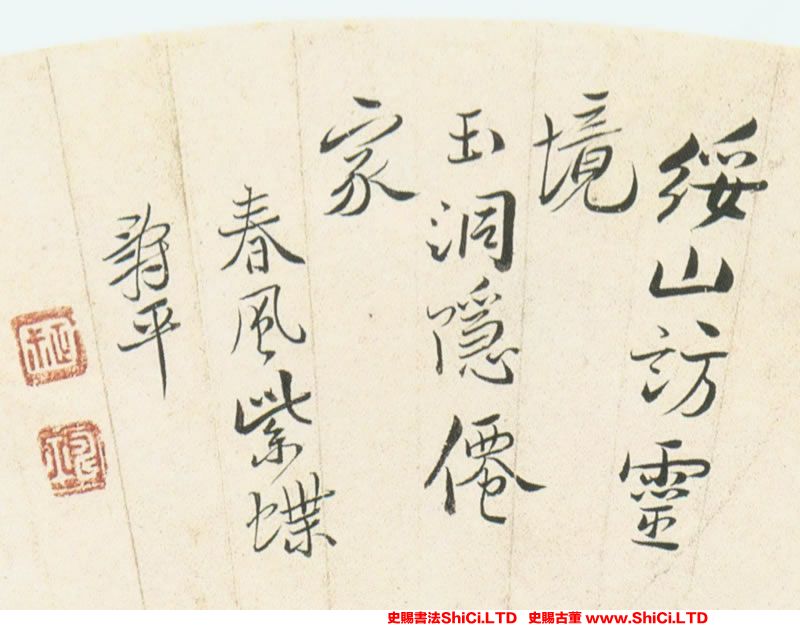 綏山訪靈
境
玉洞隱僊
家
春風紫蝶
史賜書法ShiCi.LTD 史賜古董 www.ShiCi.LTD